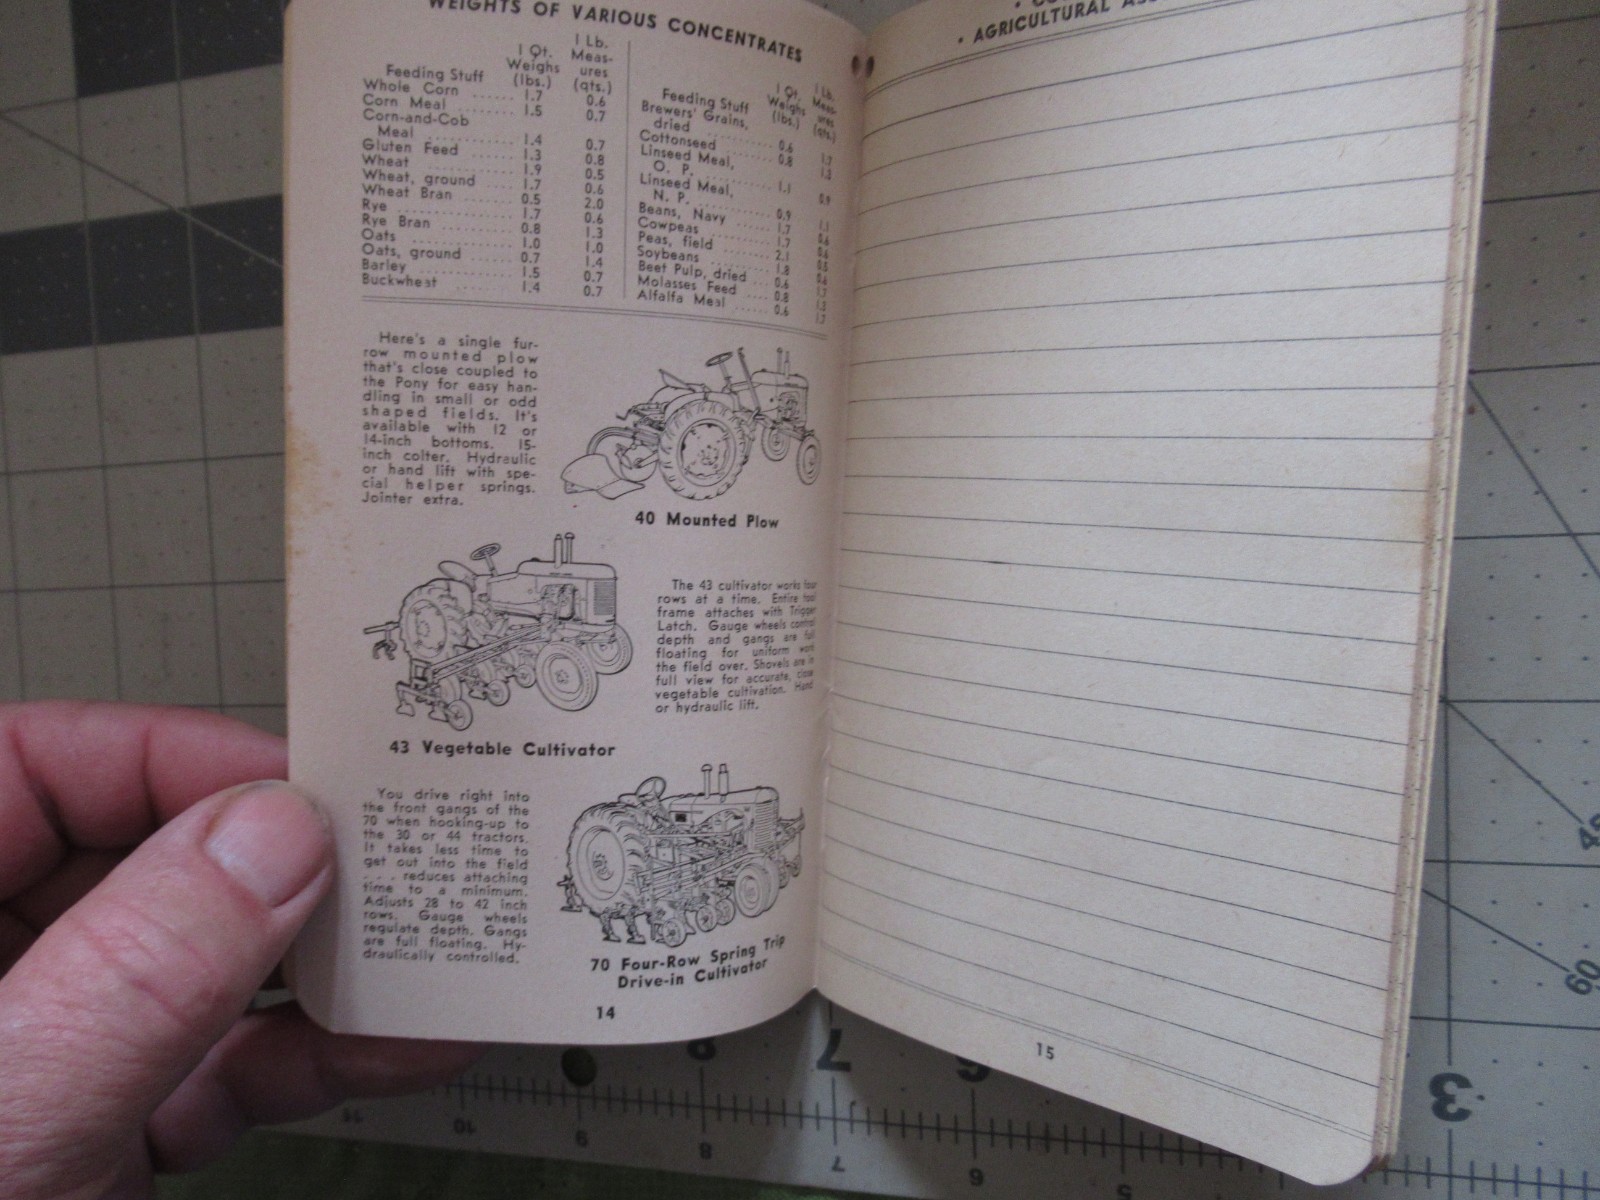 WEIGHTS OF VARIOUS CONCENTRATES
Feeding Stuff 1 Qt. Weighs (lbs.) 1 Lb. Meas- ures (qts.)
Whole Corn ...... 1.7 0.6
Corn Meal ...... 1.5 0.7
Corn-and-Cob
Meal ........... 1.4 0.7
Gluten Feed ...... 1.3 0.8
Wheat ........... 1.9 0.5
Wheat, ground ...... 1.7 0.6
Wheat Bran ....... 0.5 2.0
Rye ............ 1.7 0.6
Rye Bran ......... 0.8 1.3
Oats ............ 1.0 1.0
Oats, ground ...... 0.7 1.4
Barley .......... 1.5 0.7
Buckwheat ....... 1.4 0.7
Feeding Stuff 1 Qt. Weighs (lbs.) 1 Lb. Meas- ures (qts.)
Brewers' Grains,
dried .......... 0.6 1.7
Cottonseed ........ 0.8 1.3
Linseed Meal,
O. P. .......... 1.1 0.9
Linseed Meal,
N. P. .......... 0.9 1.1
Beans, Navy ...... 1.7 0.6
Cowpeas ......... 1.7 0.6
Peas, field ........ 2.1 0.5
Soybeans ........ 1.8 0.6
Beet Pulp, dried ... 0.6 1.7
Molasses Feed .... 0.8 1.3
Alfalfa Meal ...... 0.6 1.7
Here's a single fur-
row mounted plow
that's close coupled to
the Pony for easy han-
dling in small or odd
shaped fields. It's
available with 12 or
14-inch bottoms. 15-
inch colter. Hydraulic
or hand lift with spe-
cial helper springs.
Jointer extra.
40 Mounted Plow
The 43 cultivator works four
rows at a time. Entire tool
frame attaches with Trigger
Latch. Gauge wheels control
depth and gangs are full
floating for uniform work
the field over. Shovels are in
full view for accurate, close
vegetable cultivation. Hand
or hydraulic lift.
43 Vegetable Cultivator
You drive right into
the front gangs of the
70 when hooking-up to
the 30 or 44 tractors.
It takes less time to
get out into the field
. . . reduces attaching
time to a minimum.
Adjusts 28 to 42 inch
rows. Gauge wheels
regulate depth. Gangs
are full floating. Hy-
draulically controlled.
70 Four-Row Spring Trip
Drive-in Cultivator
14
• AGRICULTURAL
15
8 7 6 3
11 10 9 8 7 6 5
45
60